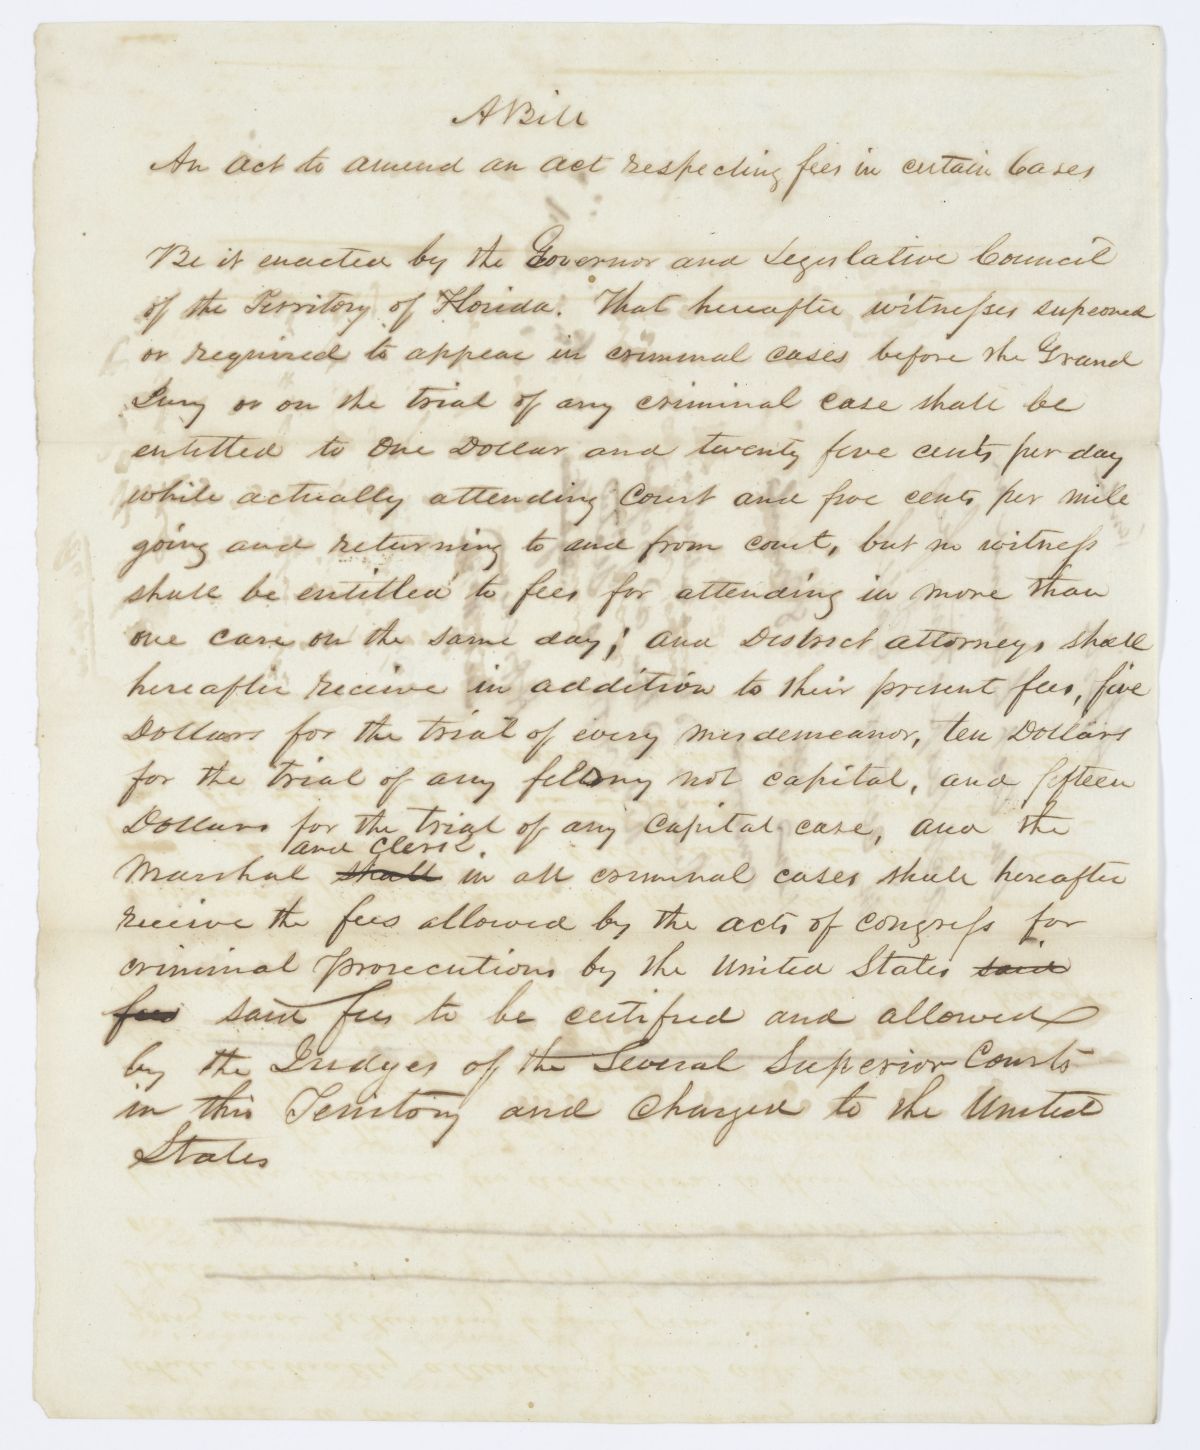 A Bill
An act to amend an act respecting fees in certain Cases
Be it enacted by the Governor and Legislative Council
of the Territory of Florida. That hereafter witnesses supeoned
or required to appear in criminal cases before the Grand
Jury or on the trial of any criminal case shall be
entitled to One Dollar and twenty five cents per day
while actually attending Court and five cents per mile
going and returning to and from court, but no witness
shall be entitled to fees for attending in more than
one case on the same day; and District attorneys shall
hereafter receive in addition to their present fees, five
Dollars for the trial of every misdemeanor, ten Dollars
for the trial of any felony not capital, and fifteen
Dollars for the trial of any Capital case, and the
and Clerk
Marshal shall in all criminal cases shall hereafter
receive the fees allowed by the acts of Congress for
criminal prosecutions by the United States said
fees said fees to be certified and allowed
by the Judges of the Several Superior Courts
in this Territory and Charged to the United
States